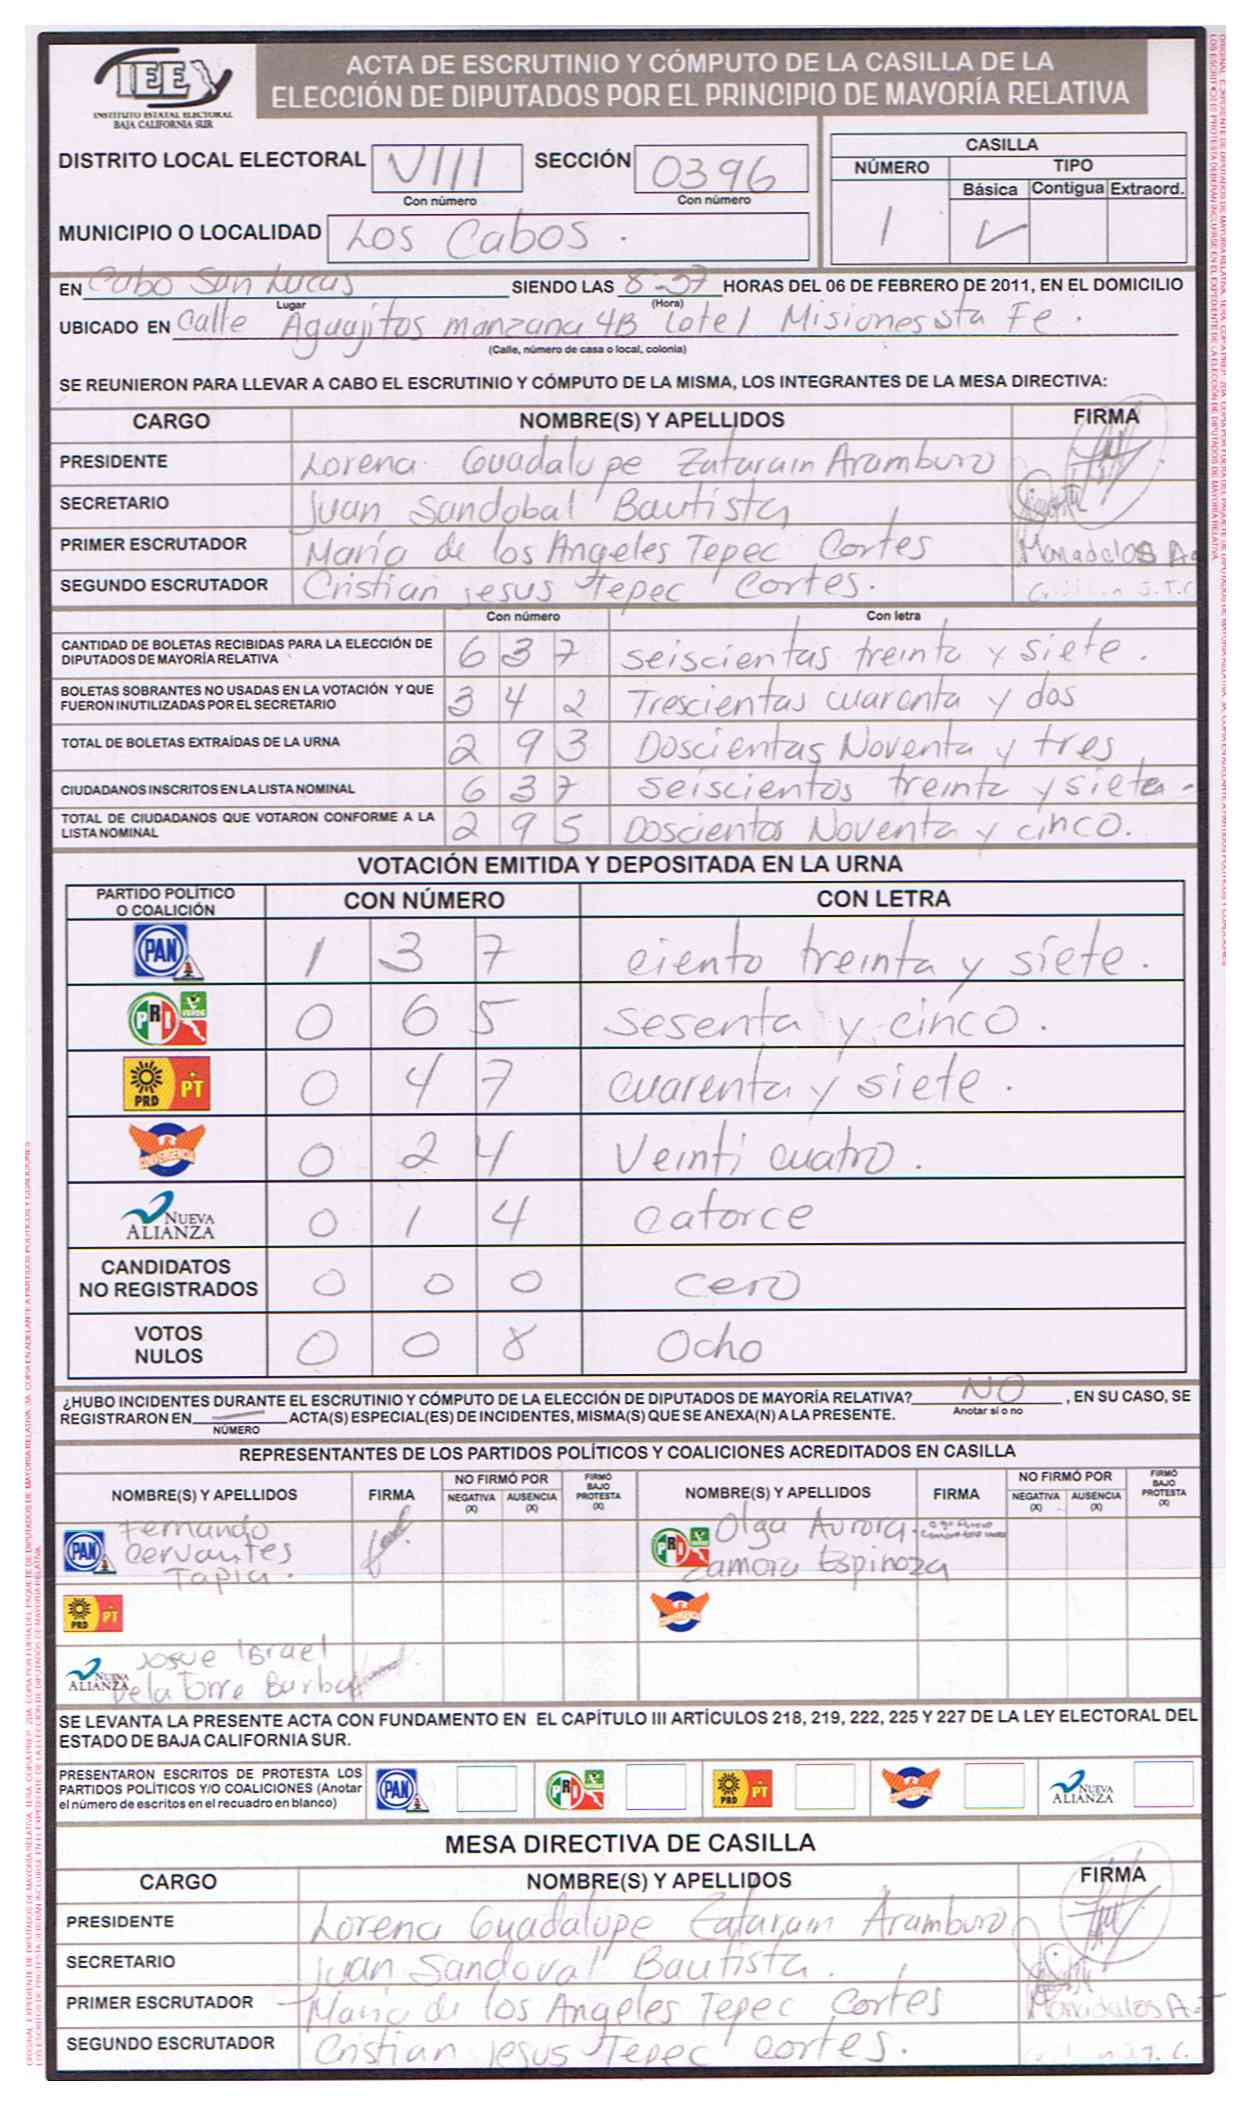 IEE
INSTITUTO ESTATAL ELECTORAL
BAJA CALIFORNIA SUR
ACTA DE ESCRUTINIO Y CÓMPUTO DE LA CASILLA DE LA
ELECCIÓN DE DIPUTADOS POR EL PRINCIPIO DE MAYORÍA RELATIVA
DISTRITO LOCAL ELECTORAL VIII SECCIÓN 0396
Con número Con número
MUNICIPIO O LOCALIDAD Los Cabos.
CASILLA
NÚMERO TIPO
Básica Contigua Extraord.
1 ✓
EN Cabo San Lucas SIENDO LAS 8-37 HORAS DEL 06 DE FEBRERO DE 2011, EN EL DOMICILIO
Lugar (Hora)
UBICADO EN Calle Aguajitos manzana 4B Lote 1 Misiones sta Fe.
(Calle, número de casa o local, colonia)
SE REUNIERON PARA LLEVAR A CABO EL ESCRUTINIO Y CÓMPUTO DE LA MISMA, LOS INTEGRANTES DE LA MESA DIRECTIVA:
CARGO NOMBRE(S) Y APELLIDOS FIRMA
PRESIDENTE Lorena Guadalupe Zatarain Aramburo
SECRETARIO Juan Sandobal Bautista
PRIMER ESCRUTADOR María de los Angeles Tepec Cortes
SEGUNDO ESCRUTADOR Cristian jesus Tepec Cortes.
Con número Con letra
CANTIDAD DE BOLETAS RECIBIDAS PARA LA ELECCIÓN DE
DIPUTADOS DE MAYORÍA RELATIVA 6 3 7 seiscientas treinta y siete.
BOLETAS SOBRANTES NO USADAS EN LA VOTACIÓN Y QUE
FUERON INUTILIZADAS POR EL SECRETARIO 3 4 2 Trescientas cuarenta y dos
TOTAL DE BOLETAS EXTRAÍDAS DE LA URNA 2 9 3 Doscientas Noventa y tres
CIUDADANOS INSCRITOS EN LA LISTA NOMINAL 6 3 7 seiscientos treinta y siete
TOTAL DE CIUDADANOS QUE VOTARON CONFORME A LA
LISTA NOMINAL 2 9 5 Doscientos Noventa y cinco.
VOTACIÓN EMITIDA Y DEPOSITADA EN LA URNA
PARTIDO POLÍTICO
O COALICIÓN CON NÚMERO CON LETRA
PAN 1 3 7 ciento treinta y siete.
PRI VERDE 0 6 5 sesenta y cinco.
PRD PT 0 4 7 cuarenta y siete.
CONVERGENCIA 0 2 4 Veinti cuatro.
NUEVA ALIANZA 0 1 4 catorce
CANDIDATOS
NO REGISTRADOS 0 0 0 cero
VOTOS
NULOS 0 0 8 Ocho
¿HUBO INCIDENTES DURANTE EL ESCRUTINIO Y CÓMPUTO DE LA ELECCIÓN DE DIPUTADOS DE MAYORÍA RELATIVA? NO , EN SU CASO, SE
Anotar sí o no
REGISTRARON EN ACTA(S) ESPECIAL(ES) DE INCIDENTES, MISMA(S) QUE SE ANEXA(N) A LA PRESENTE.
NÚMERO
REPRESENTANTES DE LOS PARTIDOS POLÍTICOS Y COALICIONES ACREDITADOS EN CASILLA
NOMBRE(S) Y APELLIDOS FIRMA NO FIRMÓ POR NEGATIVA (X) AUSENCIA (X) FIRMÓ BAJO PROTESTA (X) NOMBRE(S) Y APELLIDOS FIRMA NO FIRMÓ POR NEGATIVA (X) AUSENCIA (X) FIRMÓ BAJO PROTESTA (X)
PAN Fernando Cervantes Tapia. PRI Olga Aurora Zamora Espinoza
PRD PT CONVERGENCIA
NUEVA ALIANZA Josue Israel
Vela Torre
SE LEVANTA LA PRESENTE ACTA CON FUNDAMENTO EN EL CAPÍTULO III ARTÍCULOS 218, 219, 222, 225 Y 227 DE LA LEY ELECTORAL DEL
ESTADO DE BAJA CALIFORNIA SUR.
PRESENTARON ESCRITOS DE PROTESTA LOS
PARTIDOS POLÍTICOS Y/O COALICIONES (Anotar
el número de escritos en el recuadro en blanco)
PAN PRI PRD PT CONVERGENCIA NUEVA ALIANZA
MESA DIRECTIVA DE CASILLA
CARGO NOMBRE(S) Y APELLIDOS FIRMA
PRESIDENTE Lorena Guadalupe Zatarain Aramburo
SECRETARIO Juan Sandoval Bautista.
PRIMER ESCRUTADOR María de los Angeles Tepec Cortes
SEGUNDO ESCRUTADOR Cristian jesus Tepec cortes.